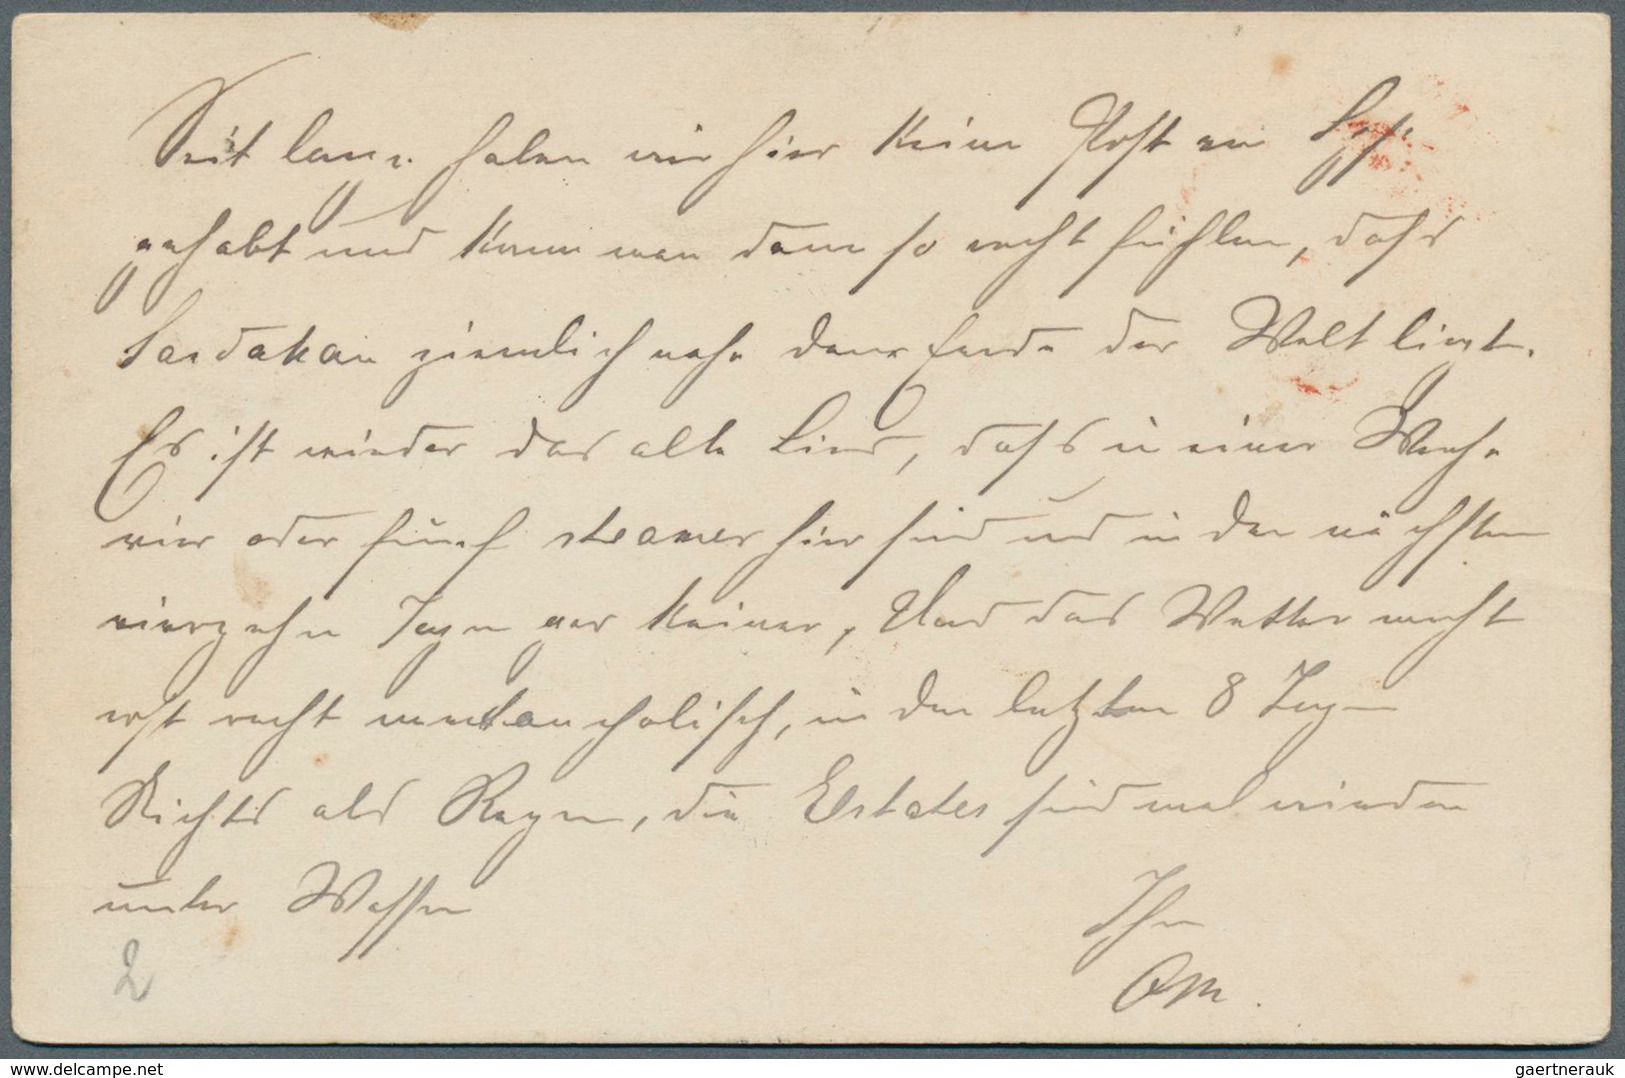 Seit lange haben wir hier keine Post von
gehabt und kann man dann so recht fühlen, daß
Sandakan ziemlich nahe dem Ende der Welt liegt.
Es ist wieder das alte Lied, daß in einer Woche
vier oder fünf steamer hier sind und in den nächsten
vierzehn Tagen gar keiner, Und das Wetter macht
erst recht melancholisch, in den letzten 8 Tagen
Nichts als Regen, die Estates sind mal wieder
unter Wasser
Ihr
2
delcampe.net
gaertnerauk